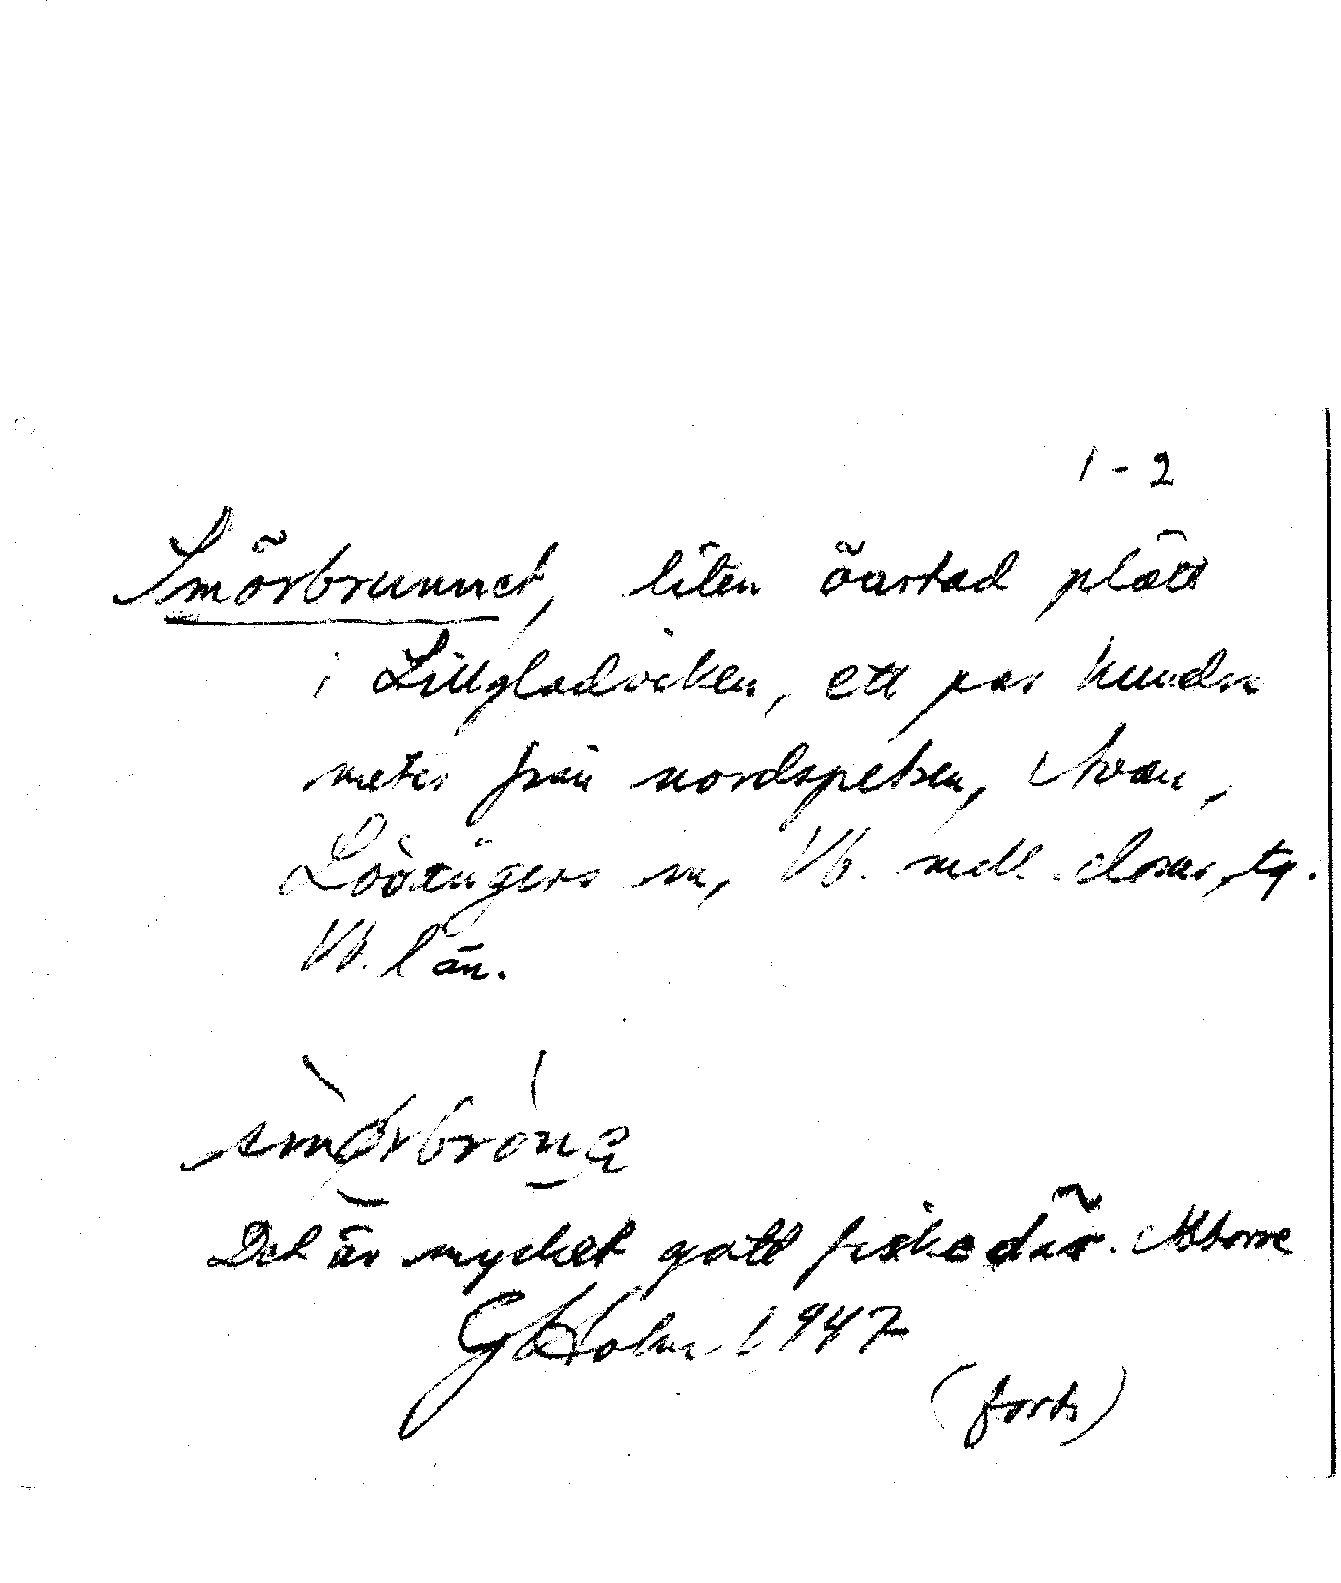 1-2
Smörbrunnet, liten öartad plätt
i Lillgladviken, ett par hundra
meter från nordspetsen, Avan,
Lövångers sn, Vb. nedl. doms, tg.
Vb. län.
smørbrónə
Det är mycket gott fiske där. Abborre
G Holm 1947
(forts)